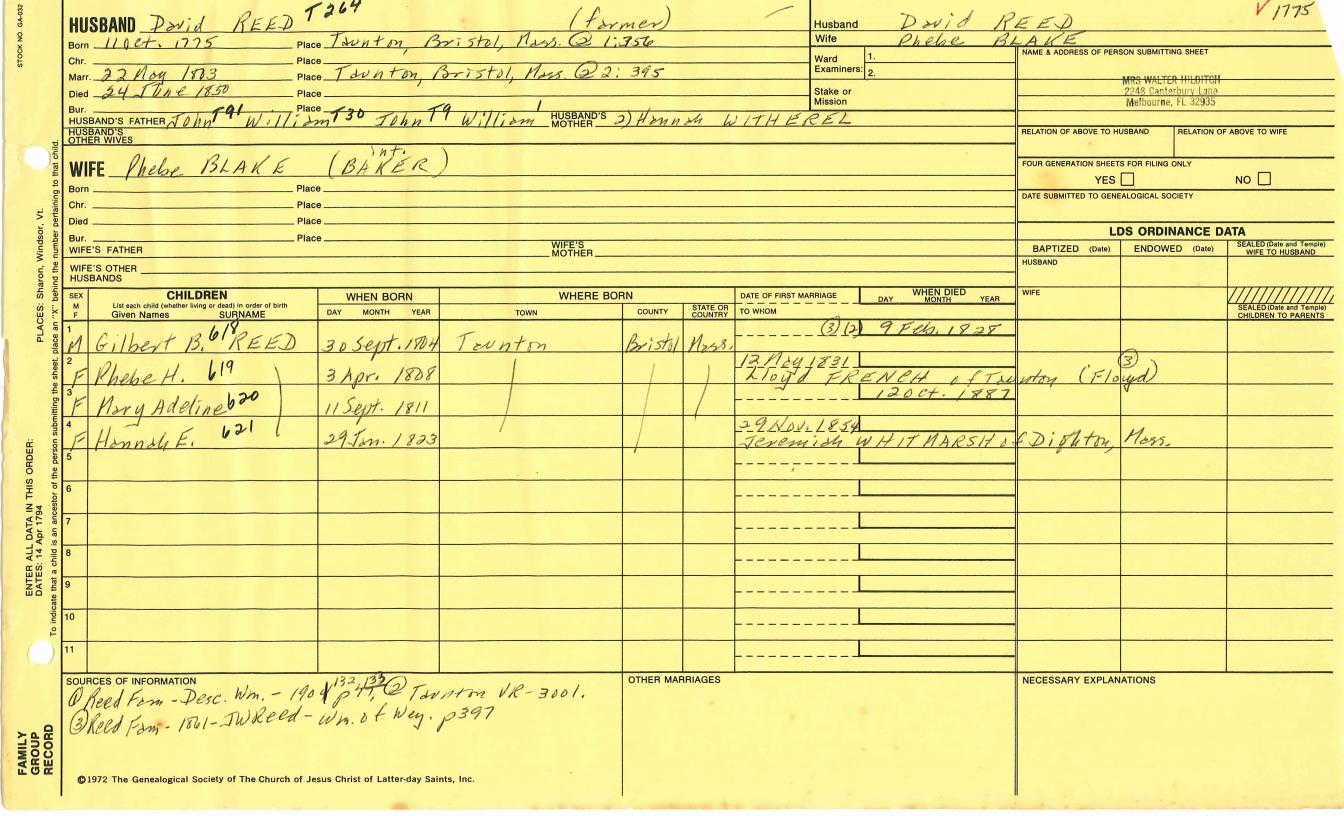 STOCK NO. GA-032
HUSBAND David REED T264 (farmer)
Born 11 Oct. 1775 Place Taunton, Bristol, Mass. ② 1:356
Chr. Place
Marr. 22 May 1803 Place Taunton, Bristol, Mass. ② 2:395
Died 24 June 1850 Place
Bur. Place
HUSBAND'S FATHER John T91 William T30 John T9 William 1 HUSBAND'S MOTHER 2) Hannah WITHEREL
HUSBAND'S OTHER WIVES
✓ 1775
Husband David REED
Wife Phebe BLAKE
Ward Examiners: 1.
2.
Stake or Mission
NAME & ADDRESS OF PERSON SUBMITTING SHEET
MRS WALTER HILDITCH
2248 Canterbury Lane
Melbourne, FL 32935
RELATION OF ABOVE TO HUSBAND RELATION OF ABOVE TO WIFE
FOUR GENERATION SHEETS FOR FILING ONLY
YES NO
DATE SUBMITTED TO GENEALOGICAL SOCIETY
int.
WIFE Phebe BLAKE (BAKER)
Born Place
Chr. Place
Died Place
Bur. Place
WIFE'S FATHER WIFE'S MOTHER
WIFE'S OTHER HUSBANDS
LDS ORDINANCE DATA
BAPTIZED (Date) ENDOWED (Date) SEALED (Date and Temple) WIFE TO HUSBAND
HUSBAND
WIFE
SEALED (Date and Temple) CHILDREN TO PARENTS
SEX M F CHILDREN WHEN BORN WHERE BORN DATE OF FIRST MARRIAGE WHEN DIED
List each child (whether living or dead) in order of birth
Given Names SURNAME DAY MONTH YEAR TOWN COUNTY STATE OR COUNTRY TO WHOM DAY MONTH YEAR
1 M Gilbert B. 618 REED 30 Sept. 1804 Taunton Bristol Mass. ③ (2) 9 Feb. 1828
2 F Phebe H. 619 3 Apr. 1808 12 May 1831 ③
Lloyd FRENCH of Taunton (Floyd)
3 F Mary Adeline 620 11 Sept. 1811 12 Oct. 1887
4 F Hannah E. 621 29 Jan. 1823 29 Nov. 1854
Jeremiah WHITMARSH of Dighton, Mass.
5
6
7
8
9
10
11
SOURCES OF INFORMATION
① Reed Fam - Desc. Wm. - 1901 p 132, 133 ② Taunton VR - 3001.
③ Reed Fam - 1861 - JWReed - Wm. of Wey. p 397
OTHER MARRIAGES
NECESSARY EXPLANATIONS
©1972 The Genealogical Society of The Church of Jesus Christ of Latter-day Saints, Inc.
FAMILY GROUP RECORD
ENTER ALL DATA IN THIS ORDER:
DATES: 14 Apr 1794 PLACES: Sharon, Windsor, Vt.
To indicate that a child is an ancestor of the person submitting the sheet, place an "X" behind the number pertaining to that child.